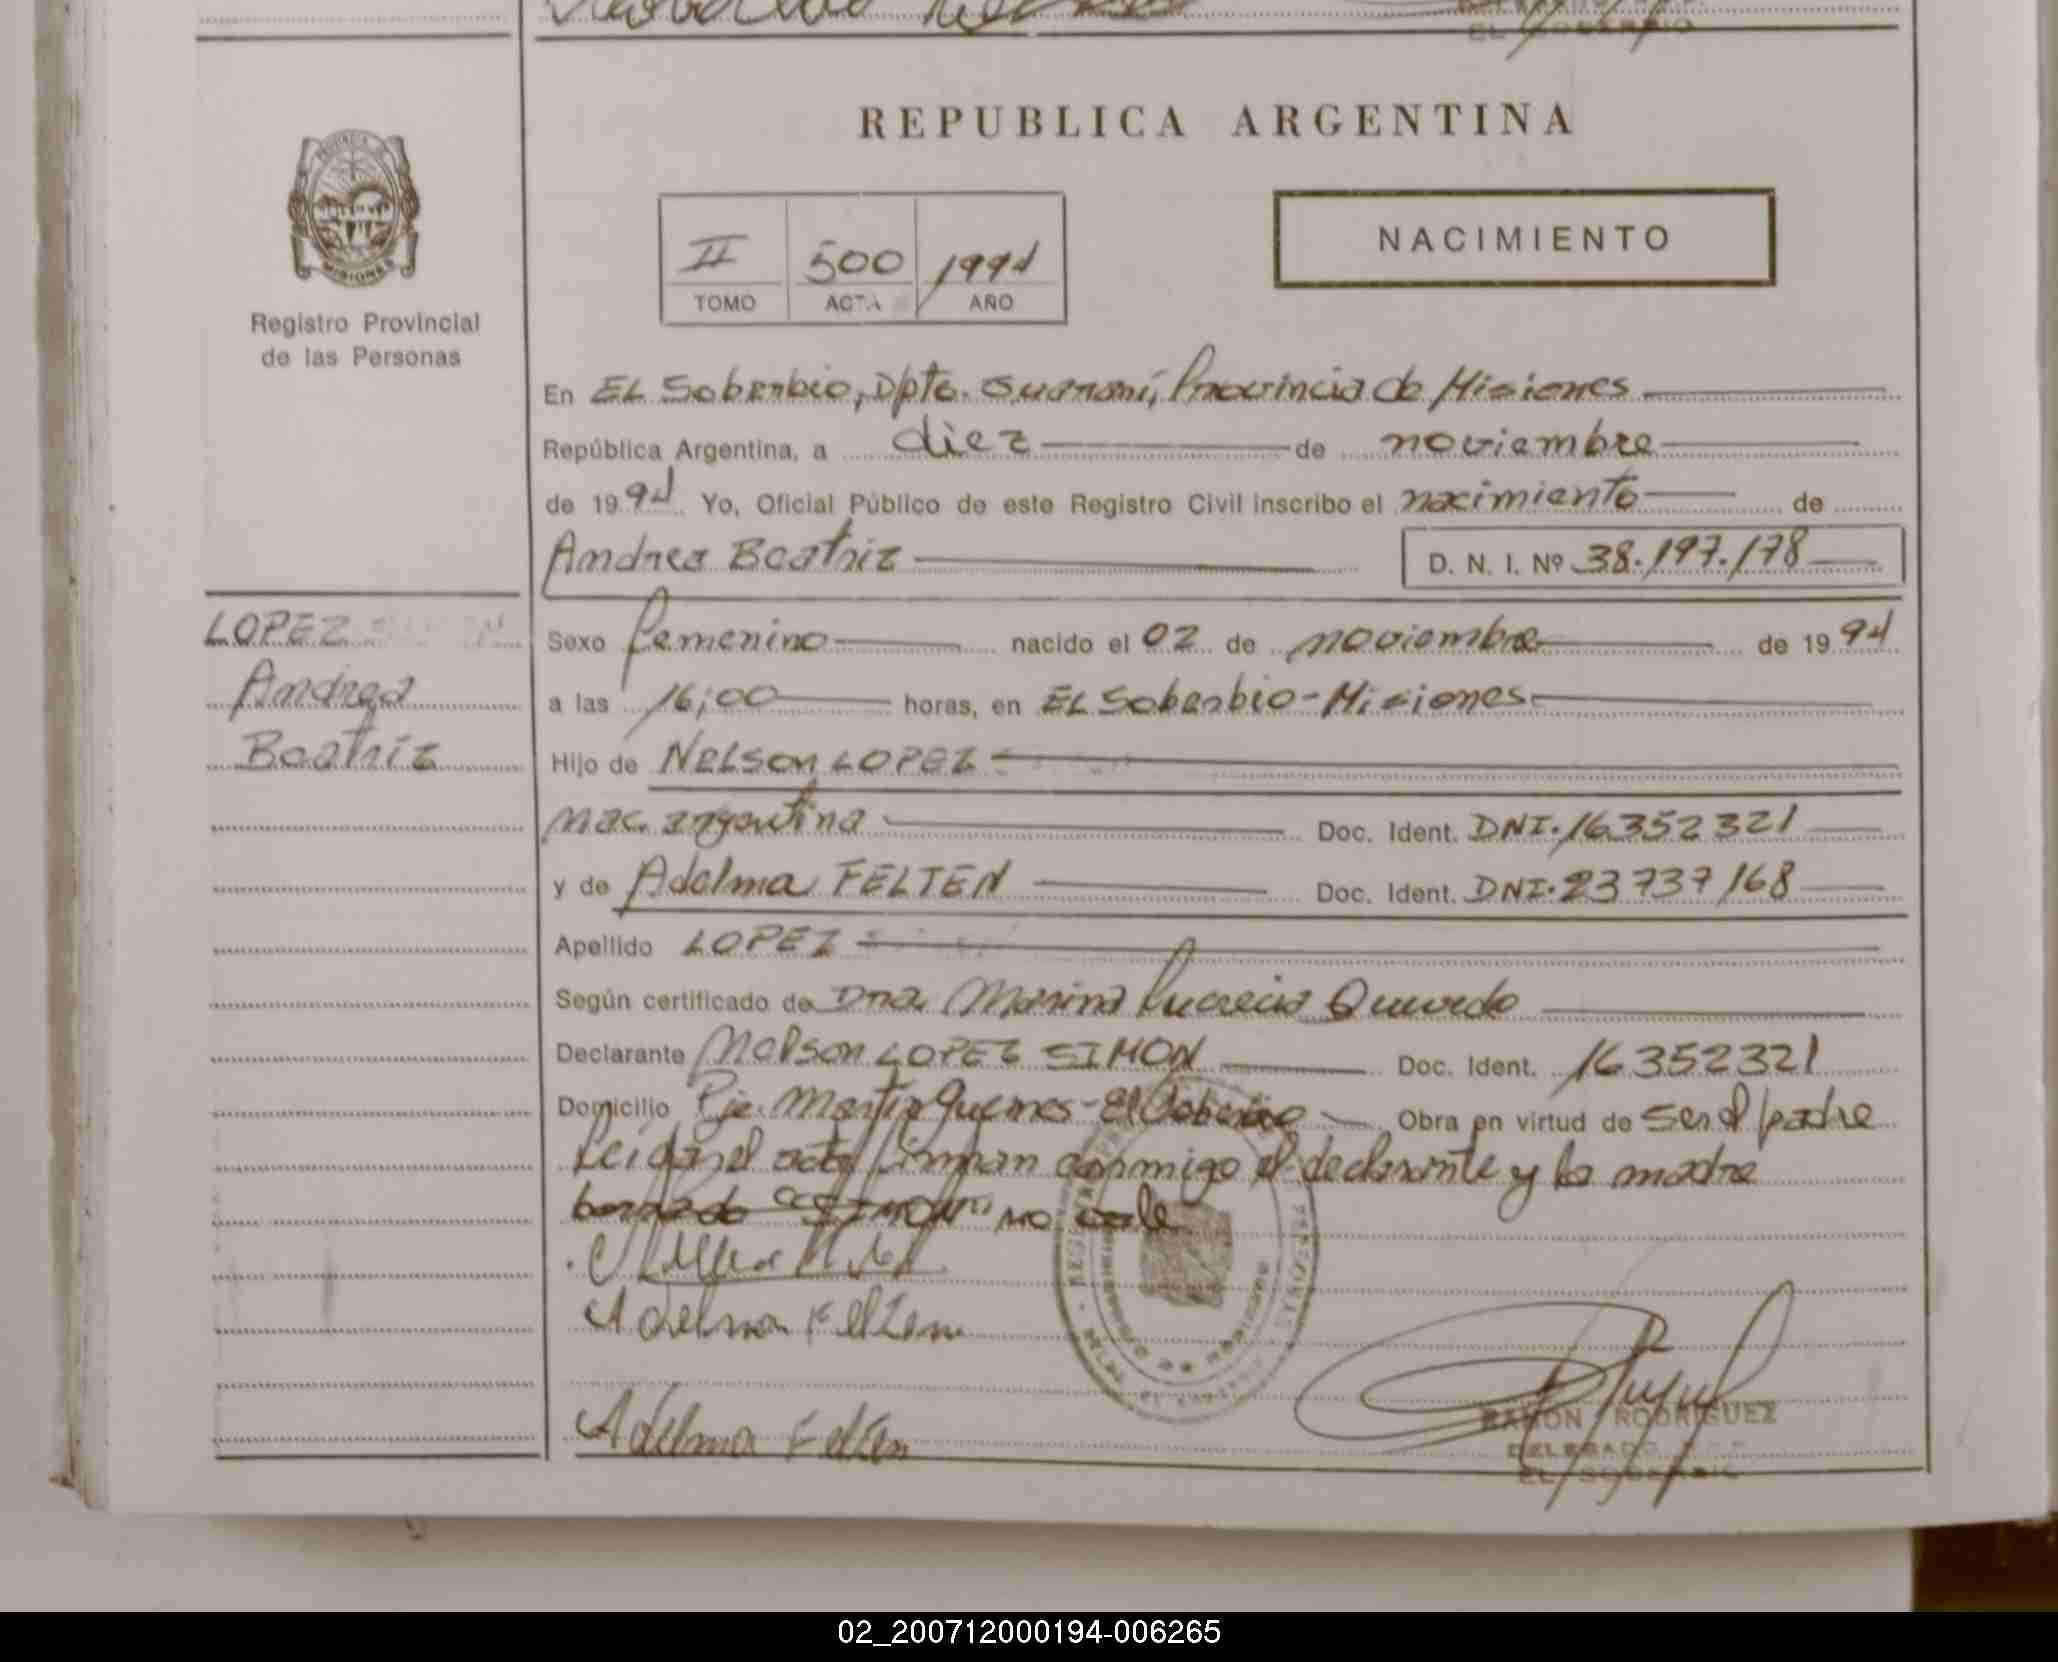 REPUBLICA ARGENTINA
PROVINCIA DE
MISIONES
Registro Provincial
de las Personas
NACIMIENTO
II 500 1994
TOMO ACTA AÑO
En EL Soberbio, Dpto. Guaraní, Provincia de Misiones
República Argentina, a diez de noviembre
de 1994 Yo, Oficial Público de este Registro Civil inscribo el nacimiento de
Andrea Beatriz D. N. I. Nº 38.197.178
LOPEZ
Andrea
Beatriz
Sexo femenino nacido el 02 de noviembre de 1994
a las 16;00 horas, en EL Soberbio-Misiones
Hijo de NELSON LOPEZ
nac. argentina Doc. Ident. DNI.16352321
y de Adelma FELTEN Doc. Ident. DNI.23737168
Apellido LOPEZ
Según certificado de Dra. Marina Lucrecia Quevedo
Declarante Nelson LOPEZ SIMON Doc. Ident. 16352321
Domicilio Pje. Martin Guemes-El Soberbio Obra en virtud de ser el padre
Leida el acta firman conmigo el declarante y la madre
borrado "SIMON" no vale
Adelma Felten
Adelma Felten
RAMON RODRIGUEZ
DELEGADO
EL SOBERBIO
02_200712000194-006265